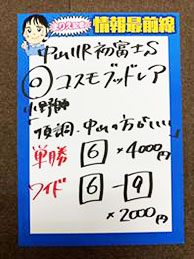 情報最前線
中山11R 初富士S
◎ コスモブッドレア
小野師
順調。中山の方がいい
単勝 6 ×4000円
ワイド 6-9
×2000円